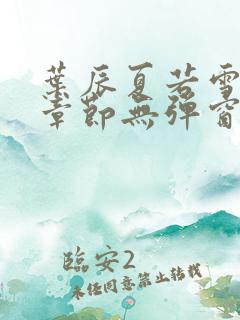 葉辰夏若雪
章節無彈窗
臨安2
未經同意禁止轉載